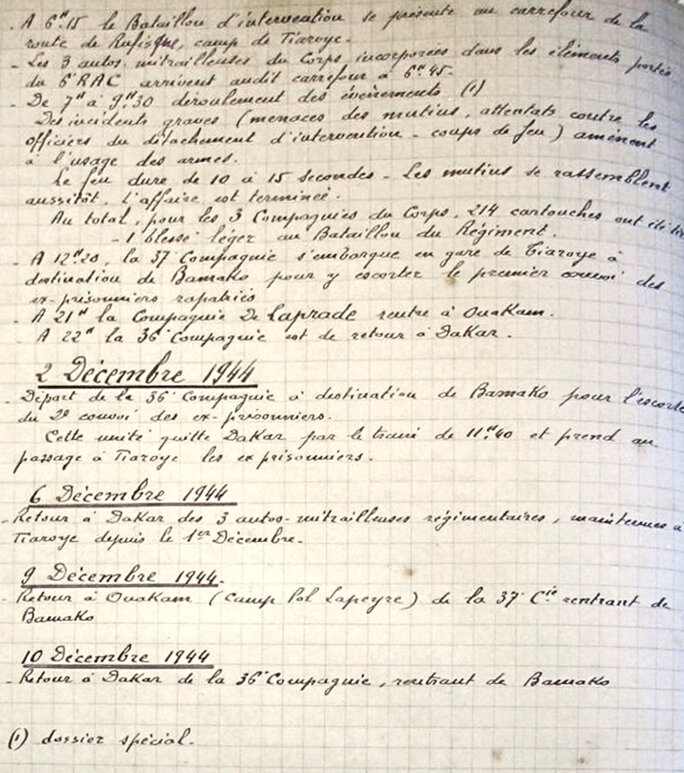 - A 6ʰ.15 le Bataillon d'intervention se présente au carrefour de la
route de Rufisque, camp de Tiaroye.
- Les 3 autos. mitrailleuses du Corps, incorporées dans les éléments portés
du 6°RAC arrivent audit carrefour à 6ʰ.45.
- De 7ʰ à 9.ʰ30 déroulement des évènements (1)
Des incidents graves (menaces des mutins, attentats contre les
officiers du détachement d'intervention - coups de feu) amènent
à l'usage des armes.
Le feu dure de 10 à 15 secondes - Les mutins se rassemblent
aussitôt. L'affaire est terminée.
Au total, pour les 3 Compagnies du Corps, 214 cartouches ont été
- 1 blessé léger au Bataillon du Régiment.
- A 12ʰ20, la 37°Compagnie s'embarque en gare de Tiaroye à
destination de Bamako pour y escorter le premier convoi des
ex-prisonniers rapatriés
- A 21ʰ la Compagnie De Laprade rentre à Ouakam.
- A 22ʰ la 36°Compagnie est de retour à Dakar.
2 Décembre 1944
- Départ de la 36°Compagnie à destination de Bamako pour l'escorte
du 2ᵉ convoi des ex-prisonniers.
Cette unité quitte Dakar par le train de 11ʰ.40 et prend au
passage à Tiaroye les ex prisonniers.
6 Décembre 1944
- Retour à Dakar des 3 autos-mitrailleuses régimentaires, maintenues à
Tiaroye depuis le 1ᵉʳ Décembre.
9 Décembre 1944.
- Retour à Ouakam (Camp Pol Lapeyre) de la 37° Cⁱᵉ rentrant de
Bamako
10 Décembre 1944
- Retour à Dakar de la 36°Compagnie, rentrant de Bamako
(1) dossier spécial.